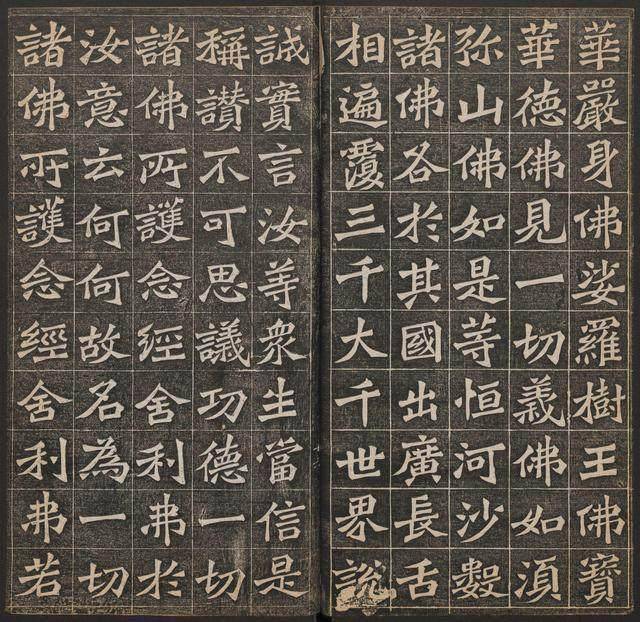 華嚴身佛娑羅樹王佛寶
華德佛見一切義佛如須
弥山佛如是等恒河沙數
諸佛各於其國出廣長舌
相遍覆三千大千世界說
誠實言汝等衆生當信是
稱讚不可思議功德一切
諸佛所護念經舍利弗於
汝意云何何故名為一切
諸佛所護念經舍利弗若